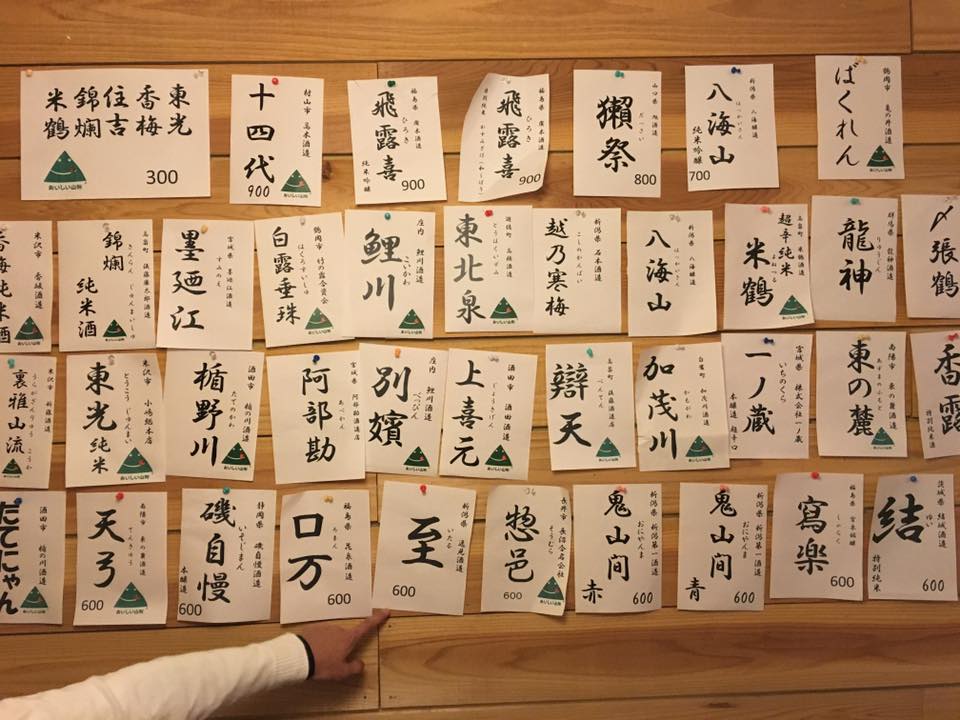 東光
香梅
住吉
錦爛
米鶴
300
おいしい山形
村山市 高木酒造
十四代
900
福島県 廣木酒造
飛露喜
ひろき
純米吟醸
900
福島県 廣木酒造
飛露喜
ひろき
900
山口県 旭酒造
獺祭
だっさい
800
新潟県 八海醸造
八海山
はっかいさん
純米吟醸
700
鶴岡市 亀の井酒造
ばくれん
米沢市 香坂酒造
香梅純米酒
高畠町 後藤康太郎酒造
錦爛
きんらん
純米酒
じゅんまいしゅ
宮城県
墨廼江
すみのえ
鶴岡市 竹の露合資会社
白露垂珠
はくろすいしゅ
庄内 鯉川酒造
鯉川
こいかわ
遊佐町 高橋酒造
東北泉
とうほくいずみ
新潟県 石本酒造
越乃寒梅
こしのかんばい
新潟県 八海醸造
八海山
はっかいさん
高畠町 米鶴酒造
超辛純米
米鶴
よねつる
群馬県 龍神酒造
龍神
りゅうじん
〆張鶴
米沢市 新藤酒造
裏雅山流
うらがさんりゅう
こうか
米沢市 小嶋総本店
東光
とうこう
純米
じゅんまい
酒田市 楯の川酒造
楯野川
たてのかわ
宮城県 阿部勘酒造店
阿部勘
あべかん
庄内 鯉川酒造
別嬪
べっぴん
酒田市 酒田酒造
上喜元
じょうきげん
高畠町 後藤酒造店
辯天
べんてん
白鷹町 加茂川酒造
加茂川
かもがわ
宮城県 株式会社一ノ蔵
一ノ蔵
いちのくら
本醸造 超辛口
南陽市 東の麓酒造
東の麓
あずまのふもと
香露
特別純米酒
酒田市 楯の川酒造
だてにゃん
南陽市 東の麓酒造
天弓
てんきゅう
600
静岡県 磯自慢酒造
磯自慢
いそじまん
本醸造
600
福島県 花泉酒造
口万
ろまん
600
新潟県 逸見酒造
至
いたる
600
長井市 長沼合名会社
惣邑
そうむら
600
新潟県 新潟第一酒造
鬼山間
おにやんま
赤
600
新潟県 新潟第一酒造
鬼山間
おにやんま
青
600
福島県 宮泉銘醸
寫楽
しゃらく
600
茨城県 結城酒造
結
ゆい
特別純米
600